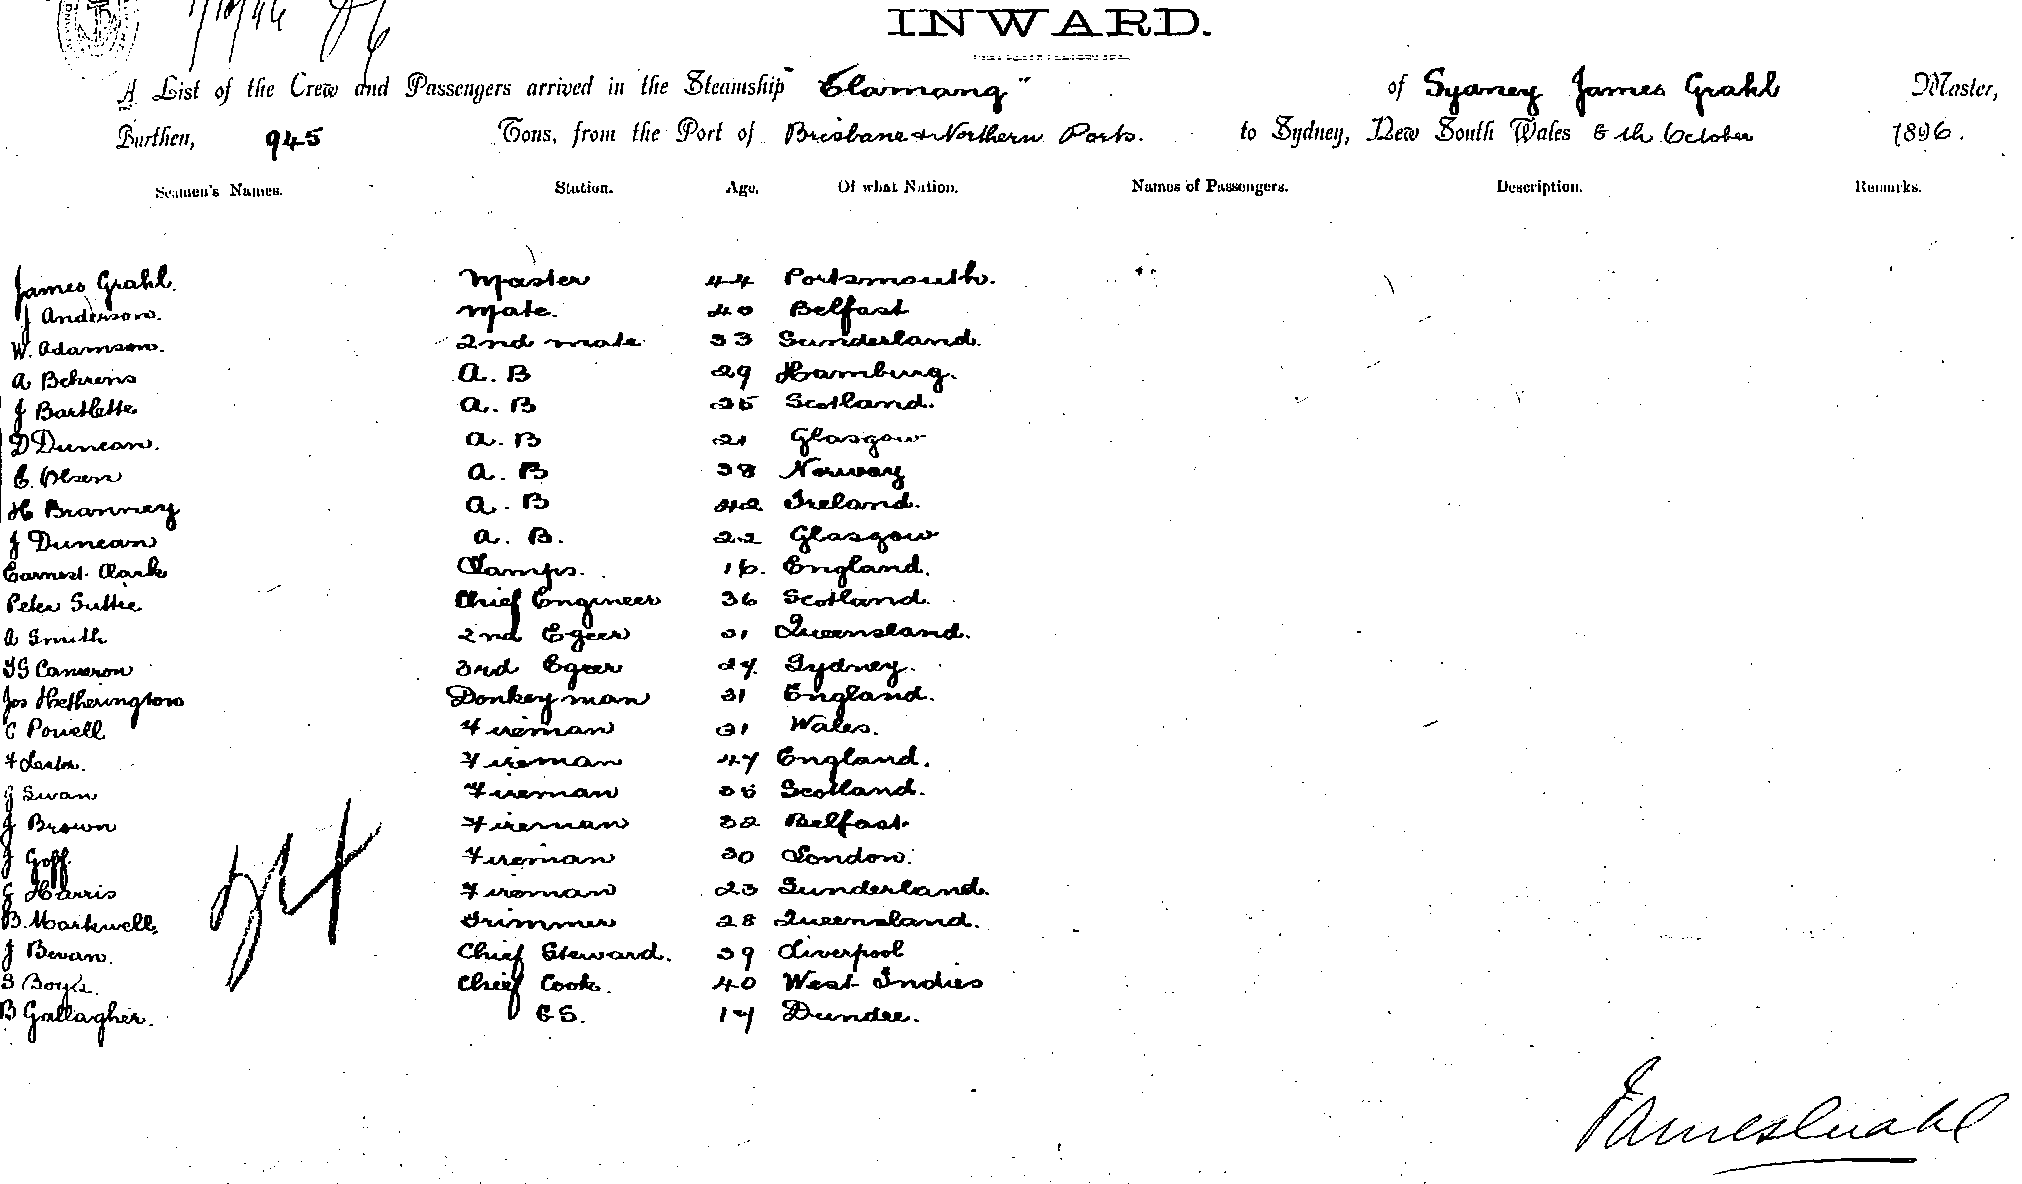 INWARD.
A List of the Crew and Passengers arrived in the Steamship "Elamang" of Sydney James Grahl Master,
Burthen, 945 Tons, from the Port of Brisbane & Northern Ports. to Sydney, New South Wales 6th October 1896.
Seamen's Names. Station. Age. Of what Nation. Names of Passengers. Description. Remarks.
James Grahl. Master 44 Portsmouth.
J Anderson. Mate. 40 Belfast
W. Adamson. 2nd mate 33 Sunderland.
A Behrens A. B 29 Hamburg.
J Bartlette A. B 25 Scotland.
D Duncan. A. B 21 Glasgow
C. Olsen A. B 38 Norway
H Branney A. B 42 Ireland.
J Duncan A. B. 22 Glasgow
Earnest Clark Lamps. 16. England.
Peter Suttie Chief Engineer 36 Scotland.
A Smith 2nd Egeer 31 Queensland.
Cameron 3rd Egeer 27 Sydney.
Jos Hetherington Donkeyman 31 England.
C Powell Fireman 31 Wales.
F Fireman 47 England.
J Swan Fireman 36 Scotland.
J Brown Fireman 32 Belfast
J Goff Fireman 30 London.
G Harris Fireman 23 Sunderland.
B. Markwell. Trimmer 28 Queensland.
J Bevan. Chief Steward. 39 Liverpool
S Boyd. Chief Cook. 40 West Indies
B Gallagher. 17 Dundee.
24
James Grahl